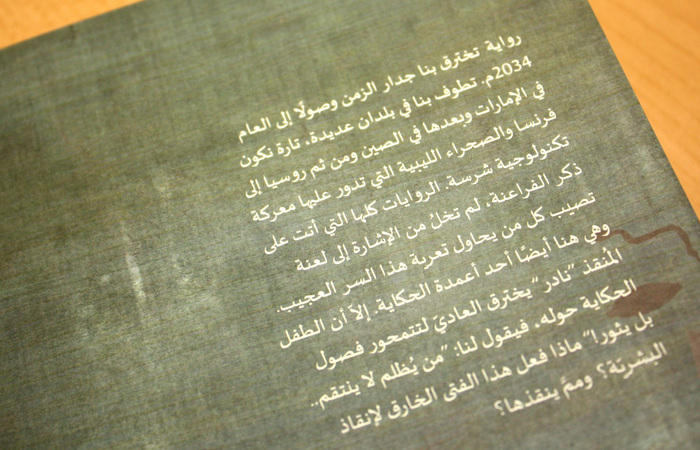 رواية تخترق بنا جدار الزمن وصولًا إلى العام
2034م. تطوف بنا في بلدان عديدة، تارة نكون
في الإمارات وبعدها في الصين ومن ثم روسيا إلى
فرنسا والصحراء الليبية التي تدور عليها معركة
تكنولوجية شرسة. الروايات كلها التي أتت على
ذكر الفراعنة، لم تخلُ من الإشارة إلى لعنة
تصيب كل من يحاول تعرية هذا السر العجيب.
وهي هنا أيضًا أحد أعمدة الحكاية. إلاّ أن الطفل
المُنقذ "نادر" يخترق العاديّ لتتمحور فصول
الحكاية حوله، فيقول لنا: "من يُظلم لا ينتقم..
بل يثور!" ماذا فعل هذا الفتى الخارق لإنقاذ
البشريّة؟ وممَّ ينقذها؟